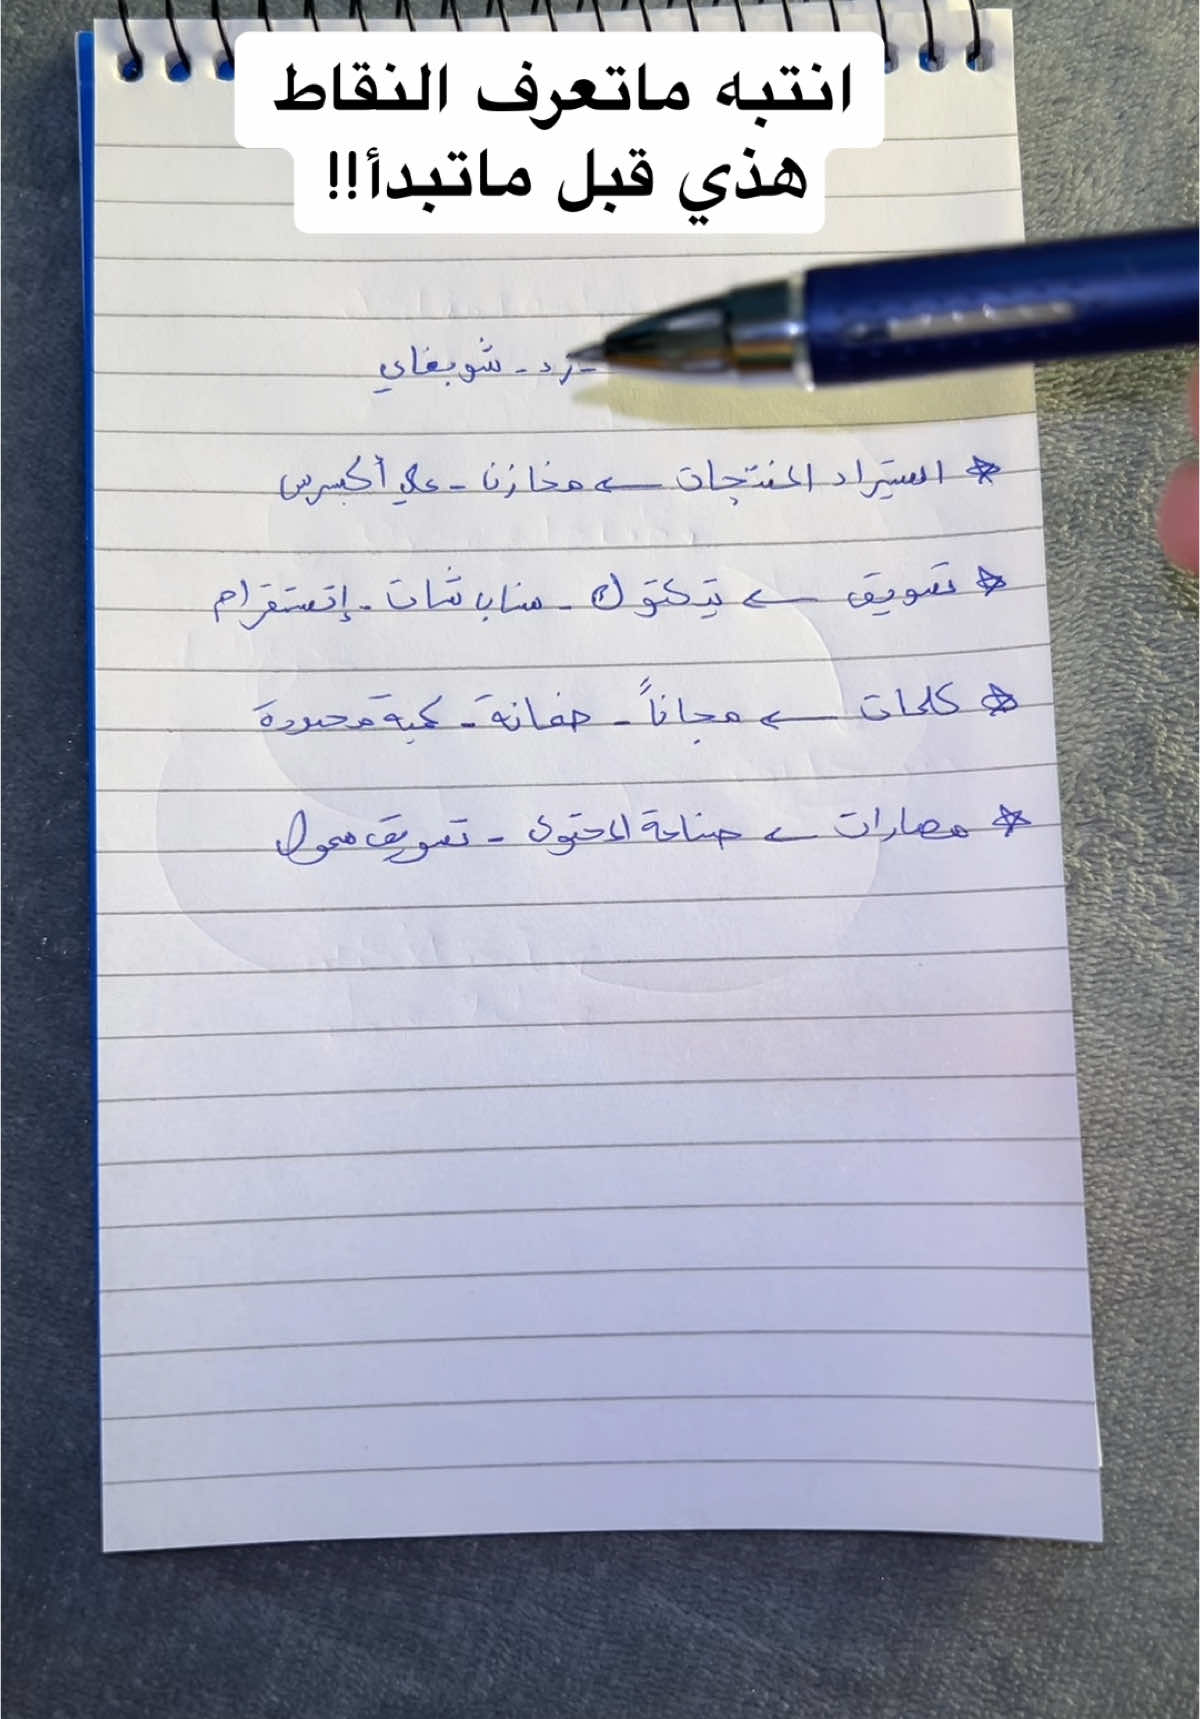 انتبه ماتعرف النقاط
هذي قبل ماتبدأ!!
- زد - شوبفاي
استيراد المنتجات ← مخازن - علي أكسبرس
تسويق ← تيكتوك - سناب شات - إنستقرام
كلمات ← مجاناً - ضمانة - كمية محدودة
مهارات ← صناعة المحتوى - تسويق ممول